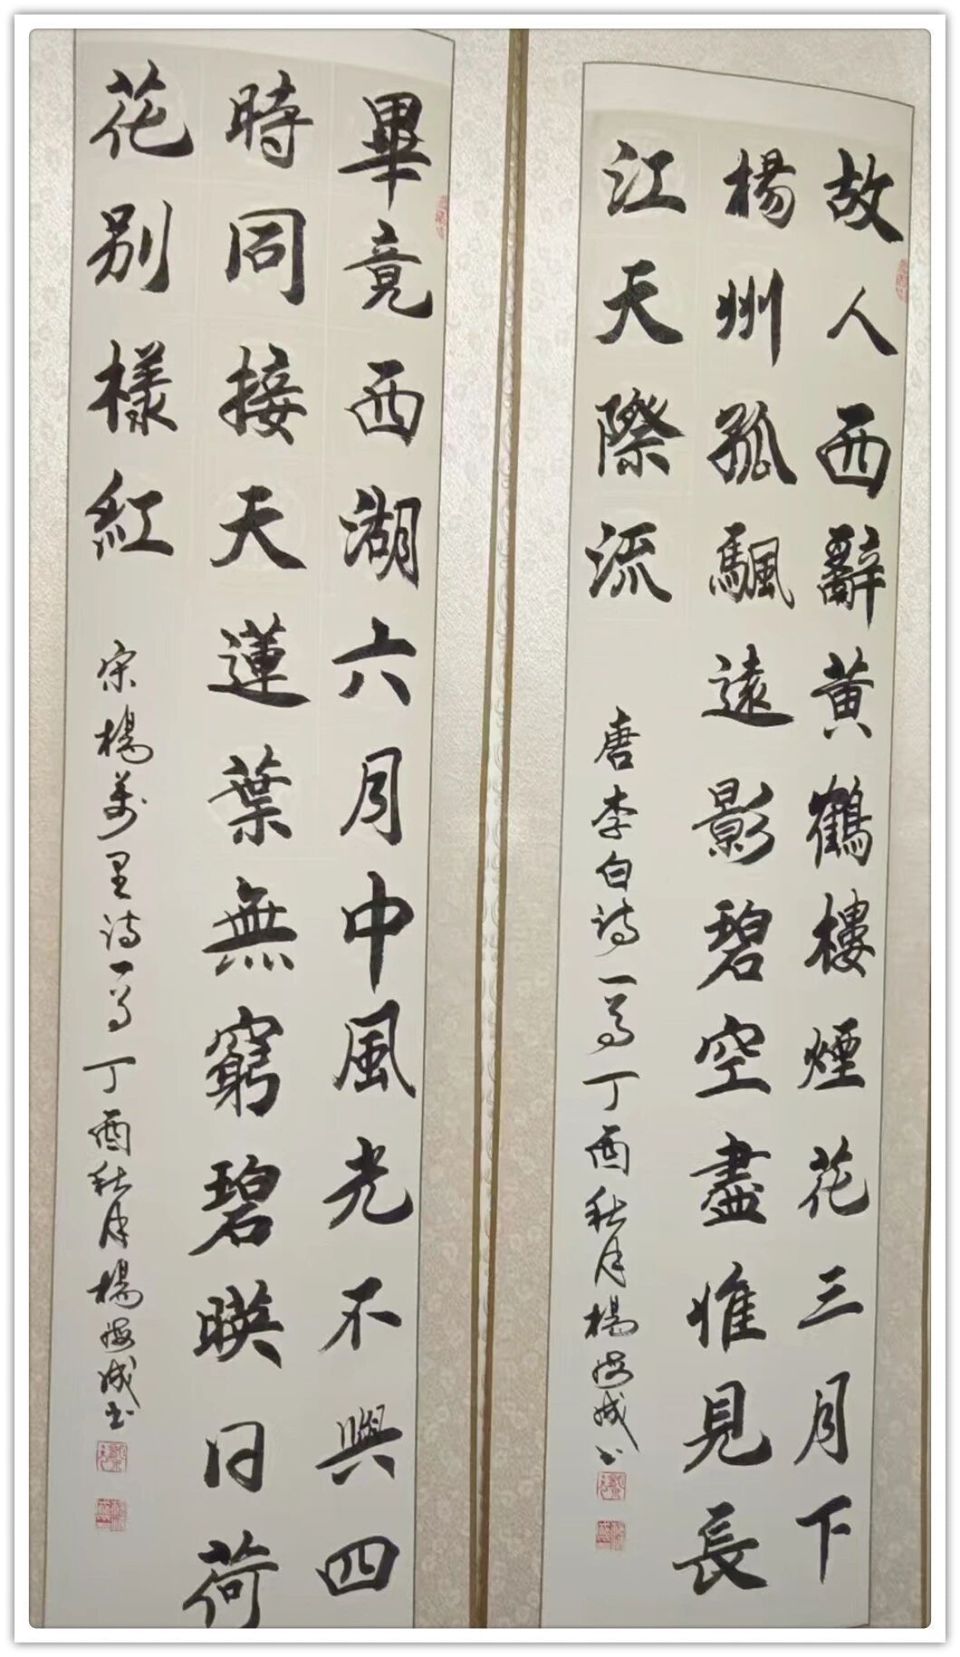 故人西辭黄鶴樓煙花三月下
楊州孤颿遠影碧空盡惟見長
江天際流
唐李白诗一首丁酉秋月楊海成书
畢竟西湖六月中風光不與四
時同接天蓮葉無窮碧暎日荷
花别樣紅
宋楊萬里诗一首丁酉秋月楊海成书